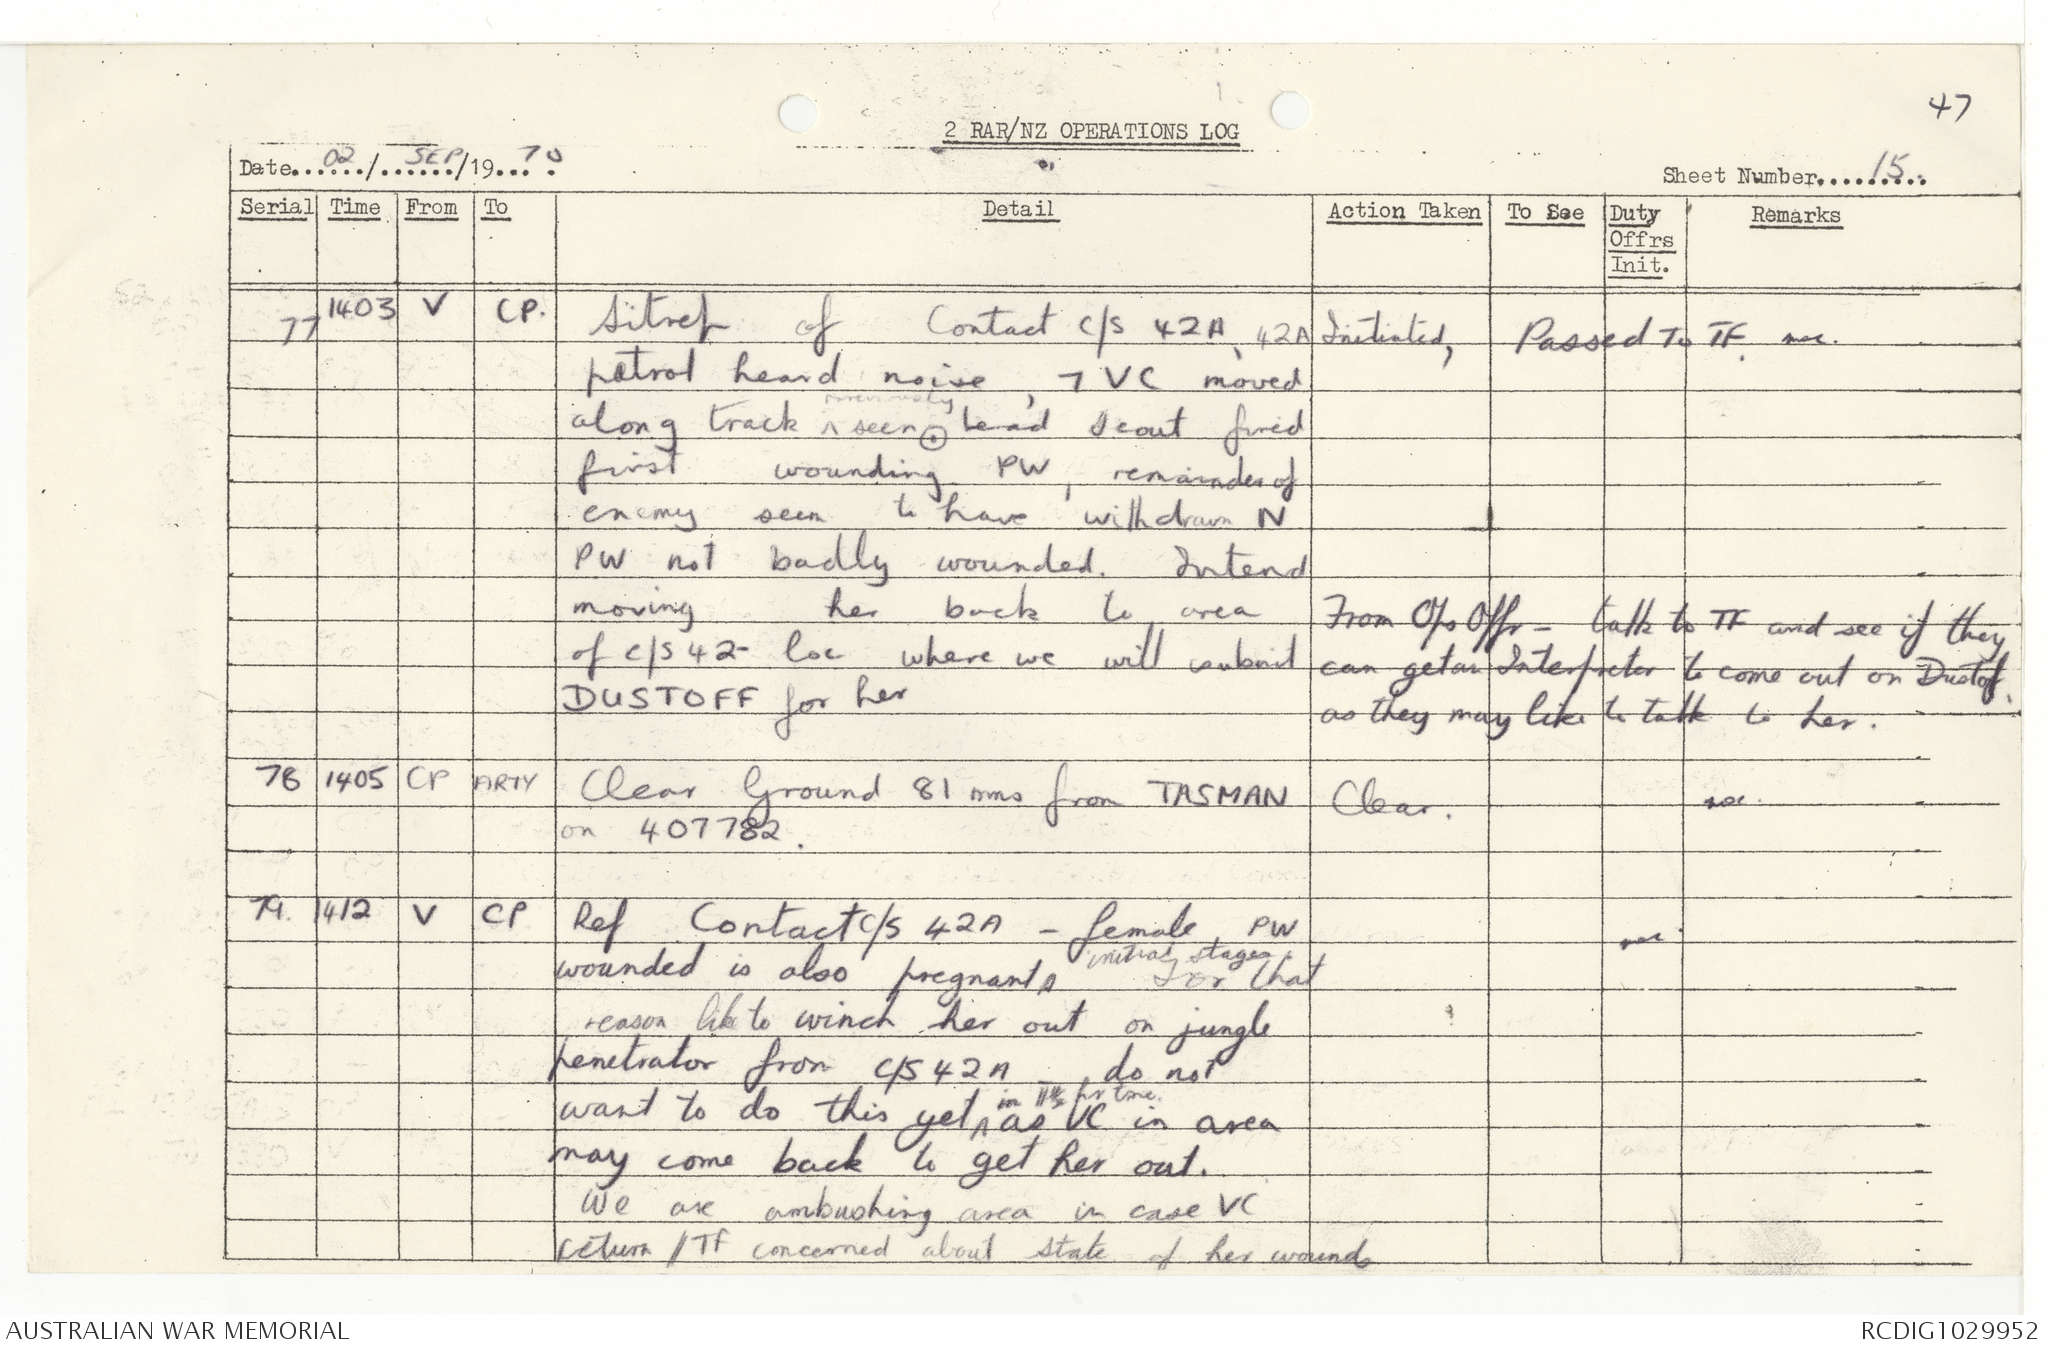 47
2 RAR/NZ OPERATIONS LOG
Date......02/...SEP.../19...70.
Sheet Number.....15....
Serial Time From To Detail Action Taken To See Duty Offrs Init. Remarks
77 1403 V CP. Sitrep of Contact c/s 42A, 42A Initiated, Passed To TF.
patrol heard noise, 7 VC moved
along track ^ previously seen ⊙ Lead Scout fired
first wounding PW, remainder of
enemy seem to have withdrawn N
PW not badly wounded. Intend
moving her back to area From Ops Offr - talk to TF and see if they
of c/s 42- loc where we will submit can get an Interpreter to come out on Dustoff,
DUSTOFF for her as they may like to talk to her.
78 1405 CP ARTY Clear Ground 81 mms from TASMAN Clear.
on 407782.
79. 1412 V CP Ref Contact c/s 42A - female PW
wounded is also pregnant ^ initial stages. For that
reason like to winch her out on jungle
penetrator from c/s 42A do not
want to do this yet, ^ in hrs time. as VC in area
may come back to get her out.
We are ambushing area in case VC
return // TF concerned about state of her wounds
AUSTRALIAN WAR MEMORIAL
RCDIG1029952